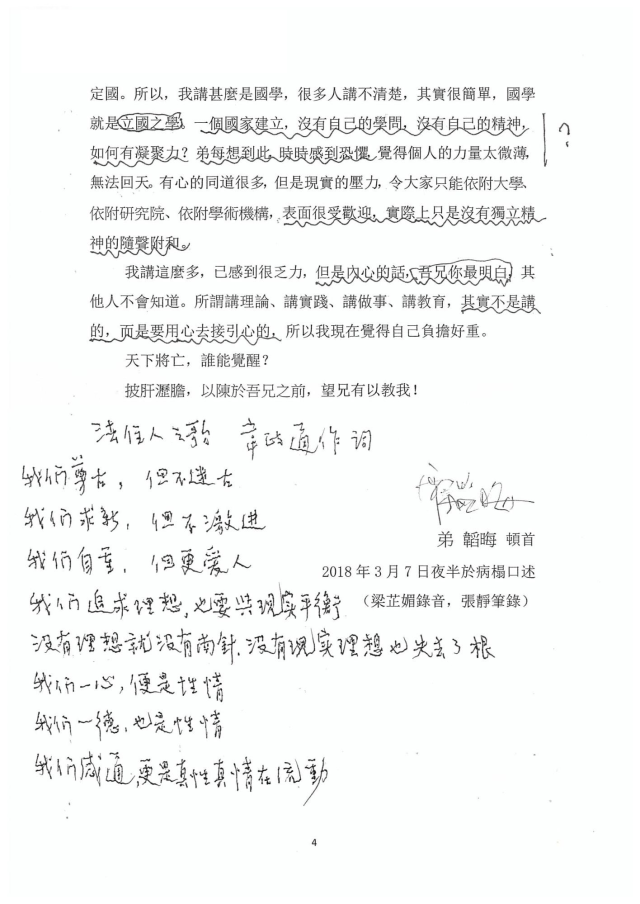 定國。所以，我講甚麼是國學，很多人講不清楚，其實很簡單，國學
就是立國之學。一個國家建立，沒有自己的學問，沒有自己的精神，
如何有凝聚力？弟每想到此，時時感到恐懼，覺得個人的力量太微薄，
無法回天。有心的同道很多，但是現實的壓力，令大家只能依附大學、
依附研究院、依附學術機構，表面很受歡迎，實際上只是沒有獨立精
神的隨聲附和。
?
我講這麼多，已感到很乏力，但是內心的話，吾兄你最明白，其
他人不會知道。所謂講理論、講實踐、講做事、講教育，其實不是講
的，而是要用心去接引心的，所以我現在覺得自己負擔好重。
天下將亡，誰能覺醒？
披肝瀝膽，以陳於吾兄之前，望兄有以教我！
法住人之歌 韋政通作词
我们尊古，但不迷古
我们求新，但不激进
我们自重，但更爱人
我们追求理想，也要與現实平衡
没有理想就没有南針，没有現实理想也失去了根
我们一心，便是性情
我们一德，也是性情
我们感通，更是真性真情在流動
弟 韜晦 頓首
2018 年 3 月 7 日夜半於病榻口述
（梁芷媚錄音，張靜筆錄）
4